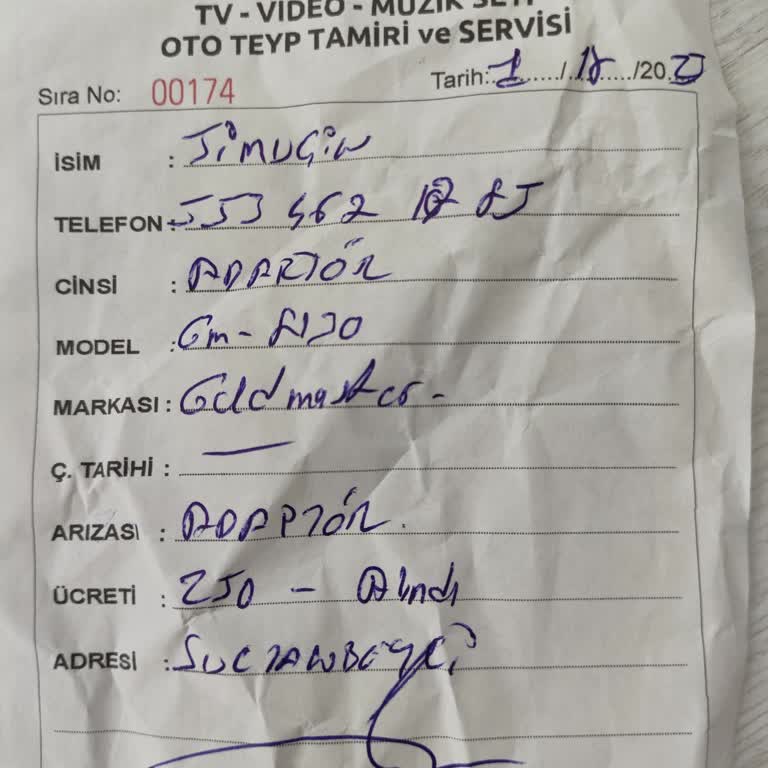 TV - VİDEO - MÜZİK SETİ
OTO TEYP TAMİRİ ve SERVİSİ
Sıra No: 00174
Tarih: 1 / /20
İSİM : TİMUÇİN
TELEFON : 553 462
CİNSİ : ADAPTÖR
MODEL : Gm-
MARKASI : Goldmaster -
Ç. TARİHİ :
ARIZASI : ADAPTÖR.
ÜCRETİ : 250 - Alındı
ADRESİ : SULTANBEYLİ